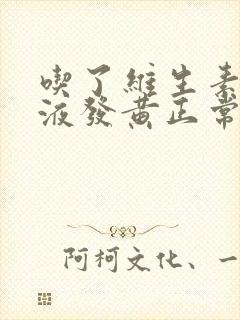 喫了維生素
液發黄正常
阿柯文化、一